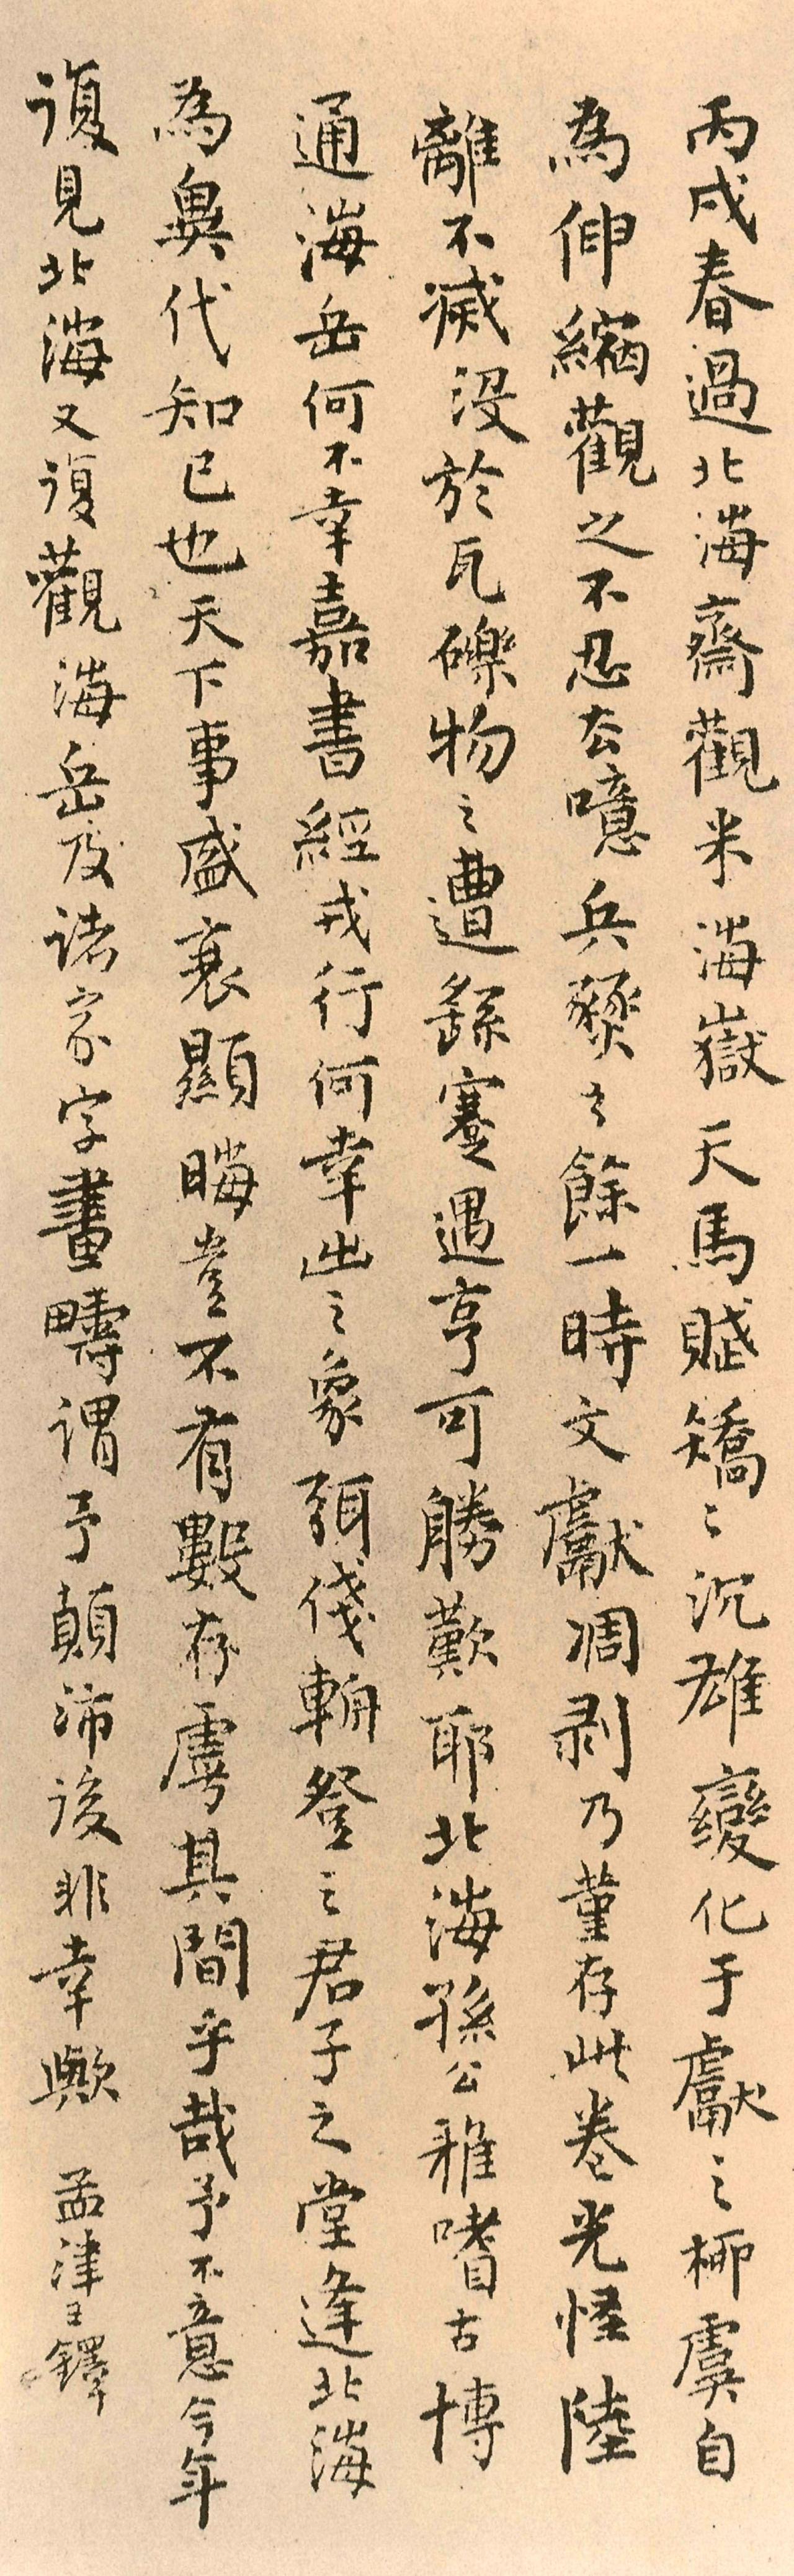 丙戌春過北海齋觀米海嶽天馬賦矯〻沉雄變化于獻之柳虞自
為伸縮觀之不忍去噫兵燹之餘一時文獻凋剥乃堇存此卷光怪陸
離不滅没於瓦礫物之遭繇蹇遇亨可勝歎耶北海孫公雅嗜古博
通海岳何不幸嘉書經戎行何幸出之象弭俴輈登之君子之堂逢北海
為異代知己也天下事盛衰顯晦豈不有數存虖其間乎哉予不意今年
復見北海又復觀海岳及諸家字畫疇謂予顛沛後非幸歟 孟津王鐸